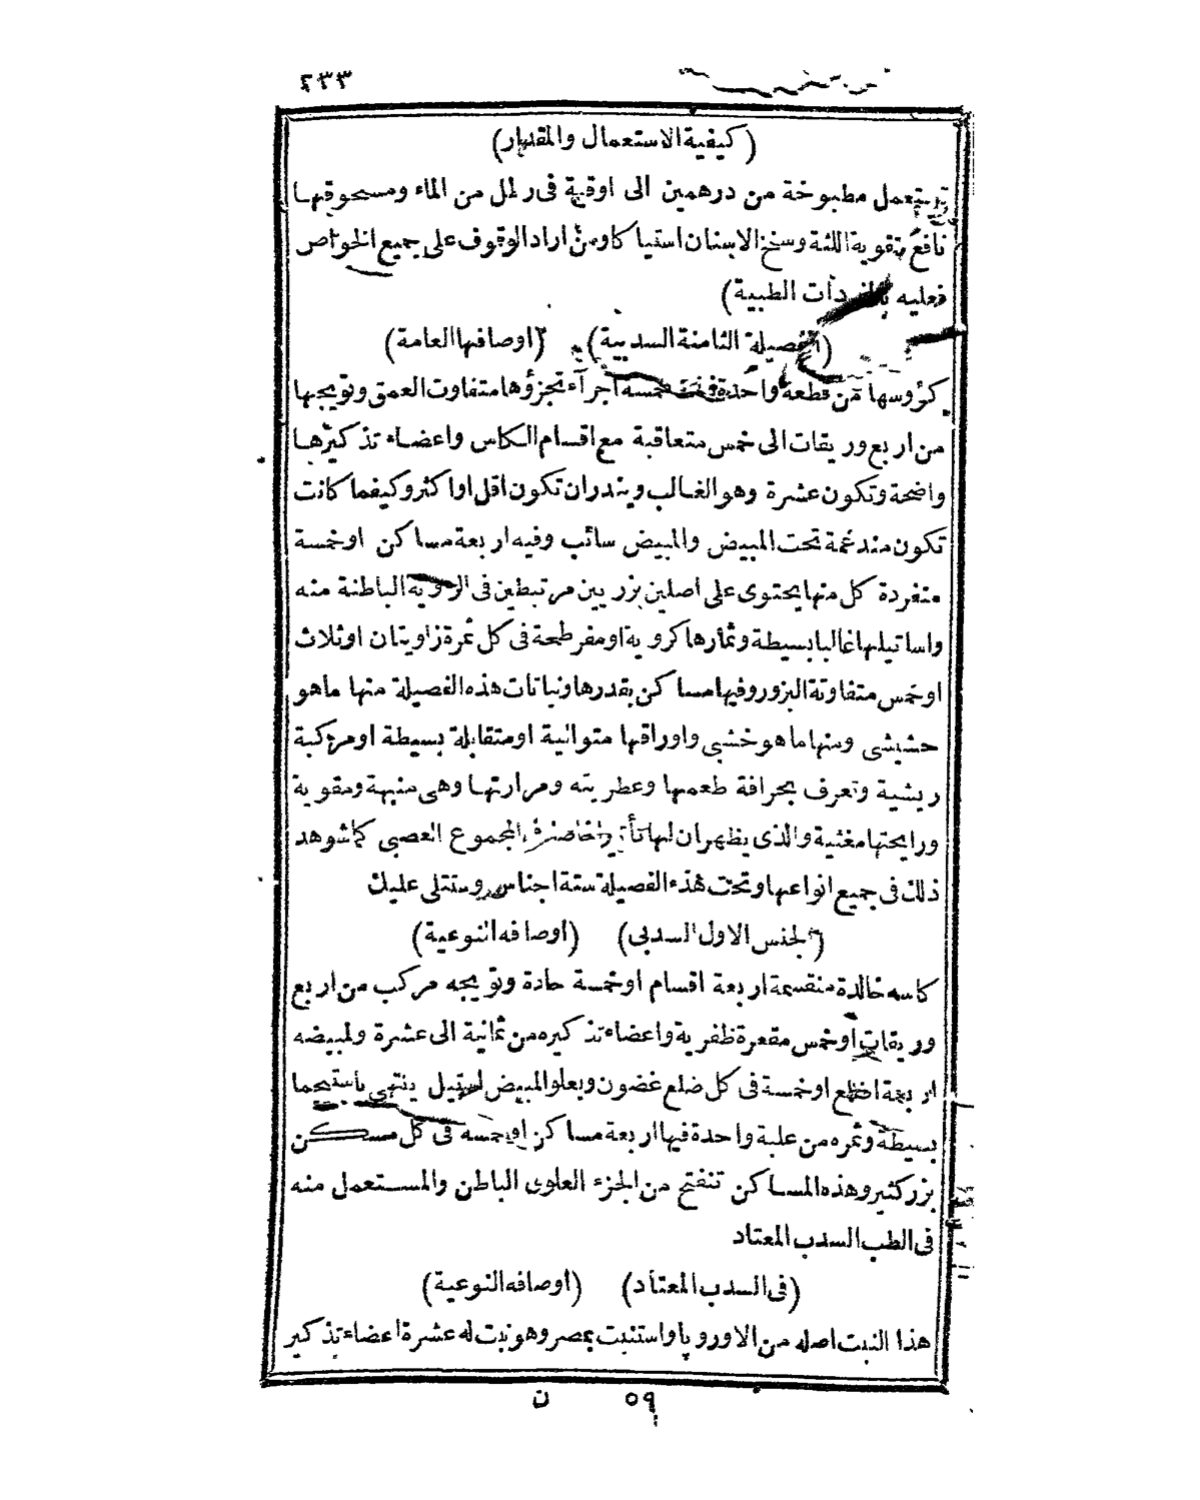 ٢٣٣
(كيفية الاستعمال والمقدار)
تستعمل مطبوخة من درهمين الى اوقية فى رطل من الماء ومسحوقها
نافع لتقوية اللثة وسنخ الاسنان استياكا ومن اراد الوقوف على جميع الخواص
فعليه بالمفردات الطبية)
(الفصيلة الثامنة السدبية) (اوصافها العامة)
كؤوسها من قطعة واحدة خمسة اجزآء تجزؤها متفاوت العمق وتويجها
من اربع وريقات الى خمس متعاقبة مع اقسام الكاس واعضاء تذكيرها
واضحة وتكون عشرة وهو الغالب ويندران تكون اقل اواكثر وكيفما كانت
تكون مندغمة تحت المبيض والمبيض سائب وفيه اربعة مساكن اوخمسة
منفردة كل منها يحتوى على اصلين بزريين مرتبطين فى الزوية الباطنة منه
واساتيلها غالبا بسيطة وثمارها كروية اومفرطحة فى كل ثمرة زاويتان اوثلاث
اوخمس متفاوتة البزور وفيها مساكن بقدرها ونباتات هذه الفصيلة منها ماهو
حشيشى ومنها ماهو خشبى واوراقها متوالية اومتقابلة بسيطة اومركبة
ريشية وتعرف بحرافة طعمها وعطريته ومرارتها وهى منبهة ومقوية
ورايحتها مغثية والذى يظهران لها تأثيرا خاصا فى المجموع العصبى كما شوهد
ذلك فى جميع انواعها وتحت هذه الفصيلة ستة اجناس وستتلى عليك
(الجنس الاول السدبى) (اوصافه النوعية)
كاسه خالدة منقسمة اربعة اقسام اوخمسة حادة وتويجه مركب من اربع
وريقات اوخمس مقعرة ظفرية واعضاء تذكيره من ثمانية الى عشرة ولمبيضه
اربعة اضلع اوخمسة فى كل ضلع غضون ويعلو المبيض استيل ينتهى باستيجما
بسيطة وثمره من علبة واحدة فيها اربعة مساكن اوخمسة فى كل مسكن
بزر كثير وهذه المساكن تنفتح من الجزء العلوى الباطن والمستعمل منه
فى الطب السدب المعتاد
(فى السدب المعتاد) (اوصافه النوعية)
هذا النبت اصله من الاوروپا واستنبت بمصر وهو نبت له عشرة اعضاء تذكير
٥٩ ن